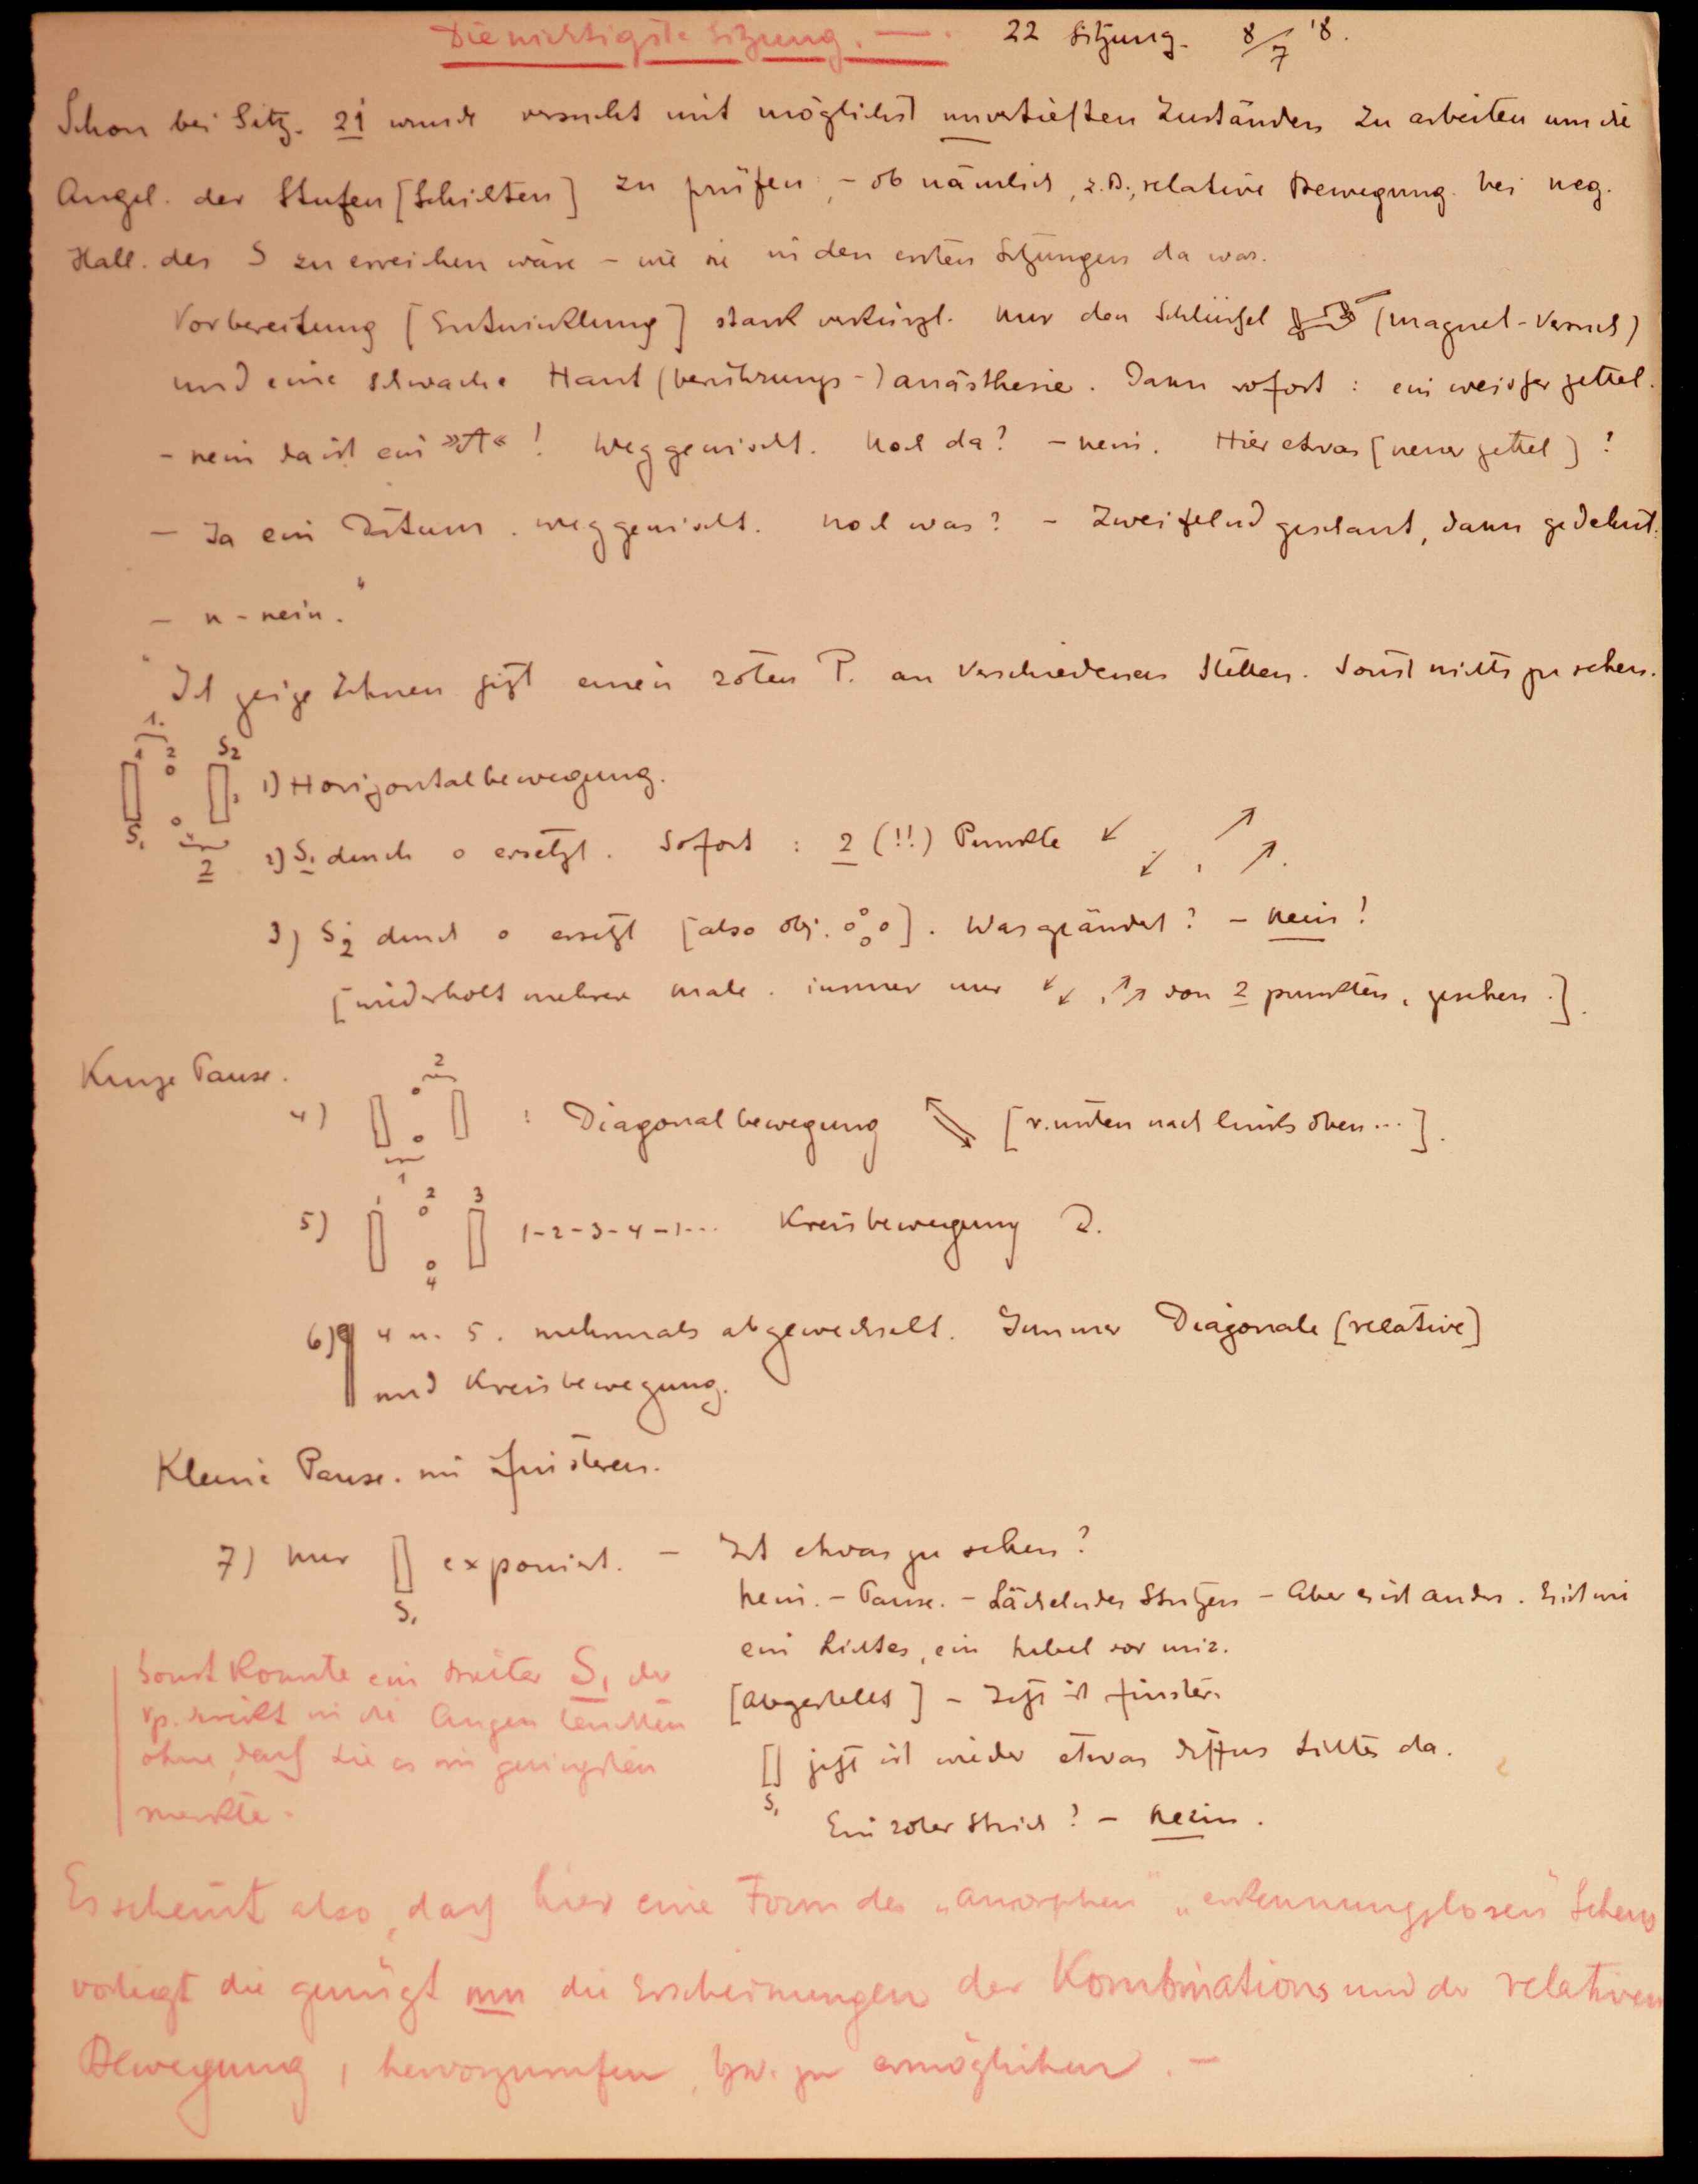 Die wichtigste Sitzung. — . 22 Sitzung. 8/7 '8.
Schon bei Sitz. 21 wurde versucht mit möglichst unvertieften Zuständen zu arbeiten um die
Angel. der Stufen [Schichten] zu prüfen, – ob nämlich, z.B., relative Bewegung bei neg.
Hall. des S zu erreichen wäre – wie sie in den ersten Sitzungen da war.
Vorbereitung [Entwicklung] stark verkürzt. Nur den Schlüssel (Magnet-Versuch)
und eine schwache Haut (berührungs-) anästhesie. Dann sofort : ein weisser Zettel.
– nein da ist ein »A« ! Weggewischt. Noch da? – nein. Hier etwas [neuer Zettel] ?
– Ja ein Datum. weggewischt. Noch was? – Zweifelnd geschaut, dann gedehnt:
– n-nein."
Ich zeige Ihnen jetzt einen roten P. an verschiedenen Stellen. Sonst nichts zu sehen.
1.
1 2 S2
1) Horizontalbewegung.
S1
2
2) S1 durch o ersetzt. Sofort : 2 (!!) Punkte ↙ ↙ , ↗ ↗ .
3) S2 durch o ersetzt [also obj. o o o o]. Was geändert? – Nein!
[wiederholt mehrere male. immer nur ↙↙, ↗↗ von 2 punkten, gesehen.].
Kurze Pause.
2
4) : Diagonalbewegung [v. unten nach links oben...].
1
1 2 3
5) 1-2-3-4-1... Kreisbewegung
4
6) 4 u. 5. mehrmals abgewechselt. Immer Diagonale [relative]
und Kreisbewegung.
Kleine Pause. im Finsteren.
7) Nur exponiert. – Ist etwas zu sehen?
S1
Nein. – Pause. – Lächelndes Stutzen – Aber es ist anders. Es ist wie
ein Lichtes, ein Nebel vor mir.
[abgestellt] – Jetzt ist finster.
jetzt ist wieder etwas diffus Lichtes da.
S1
Ein roter Strich? – Nein.
Sonst konnte ein breiter S1 der
Vp. direkt in die Augen leuchten
ohne, dass sie es im geringsten
merkte.
Es scheint also, dass hier eine Form des „amorphen" „erkennungslosen" Sehens
vorliegt die genügt um die Erscheinungen der Kombinations und der relativen
Bewegung, hervorzurufen, bzw. zu ermöglichen. –